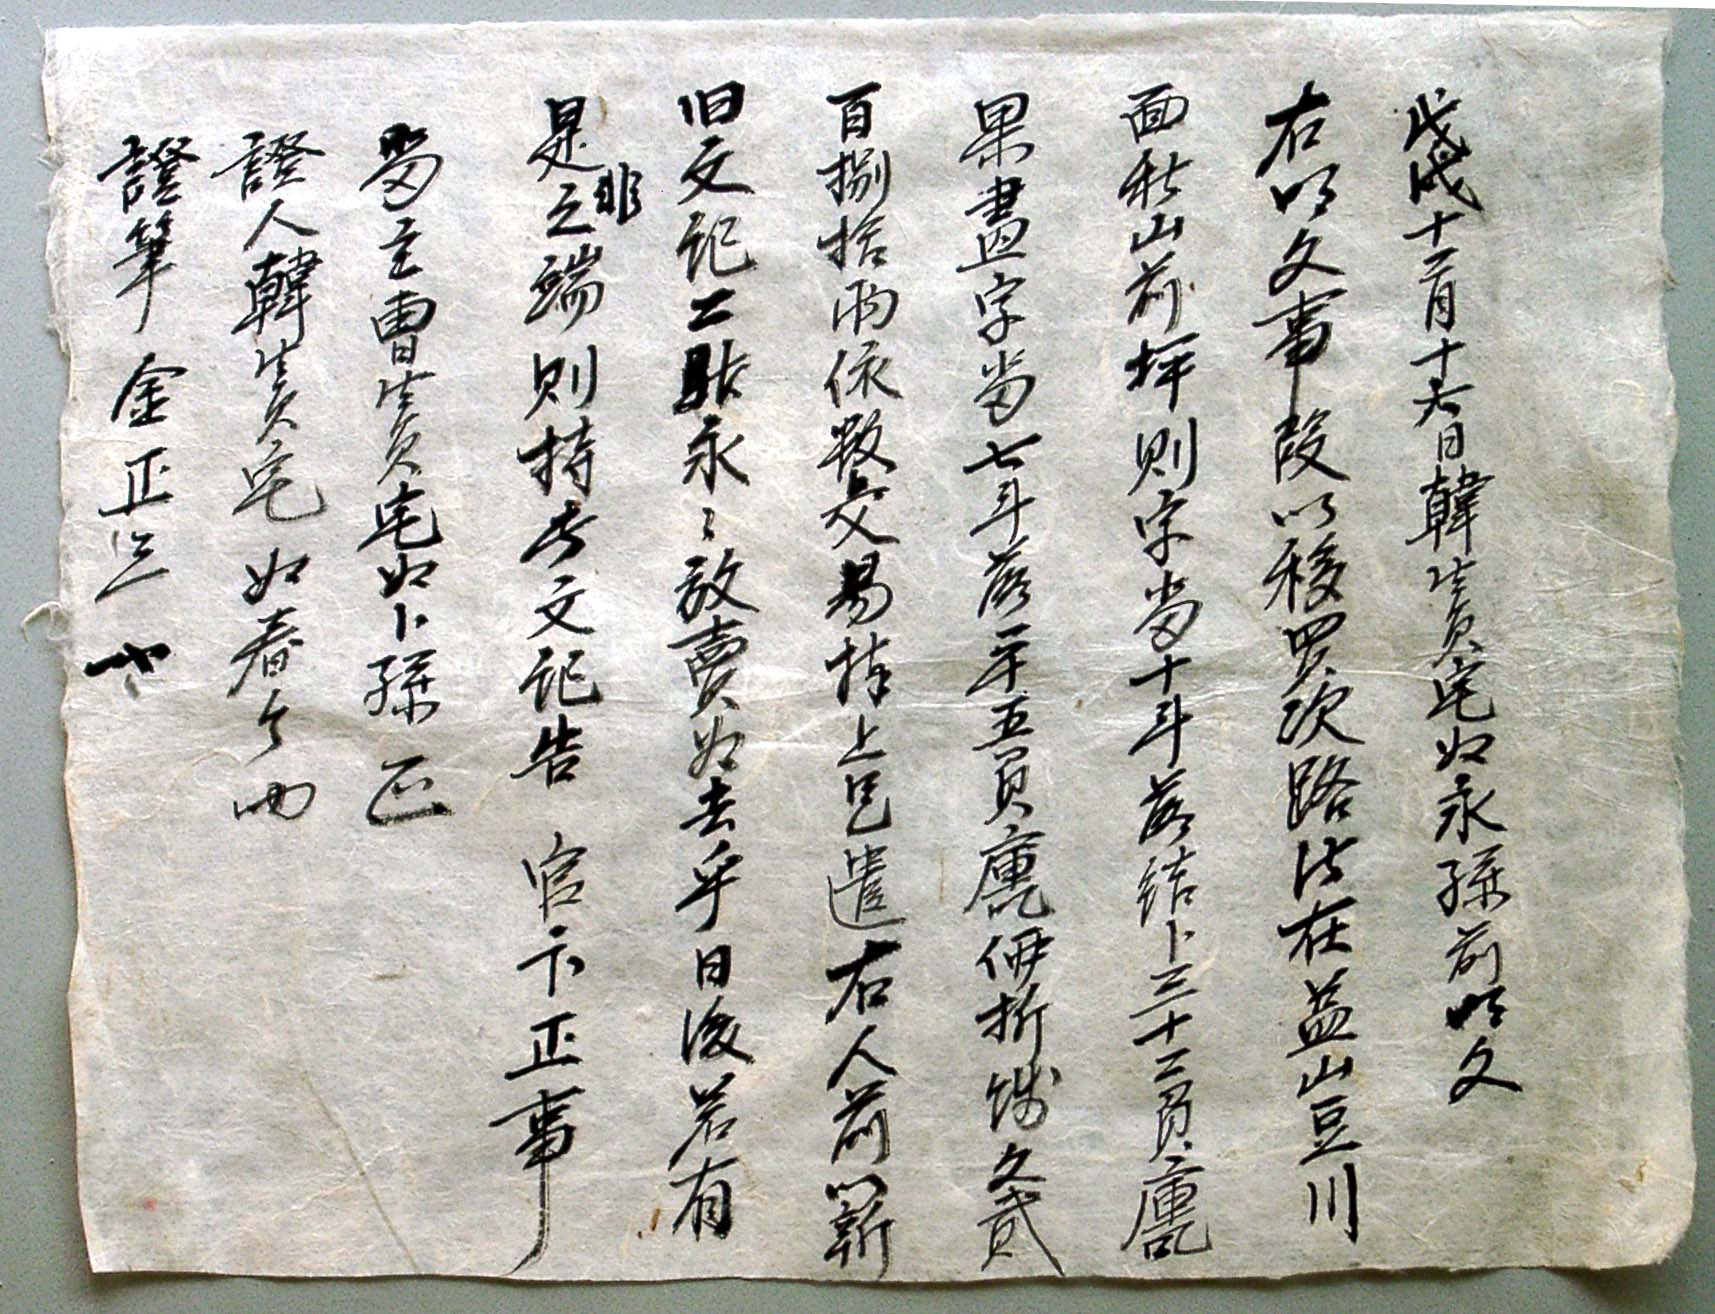 戊戌十二月十六日韓生員宅奴永孫前明文
右明文事段以移買次路伏在益山豆川
面秋山前坪則字畓十斗落結卜三十二負庫
果盡字畓七斗落二十五負庫 折錢文貳
百捌拾兩依數交易捧上是遣右人前以新
旧文記二 永〻放賣奴去乎日後若有
是非之端則持此文記告 官卞正事
畓主曺生員宅奴卜孫
證人韓生員宅 奴春
證筆 金正三